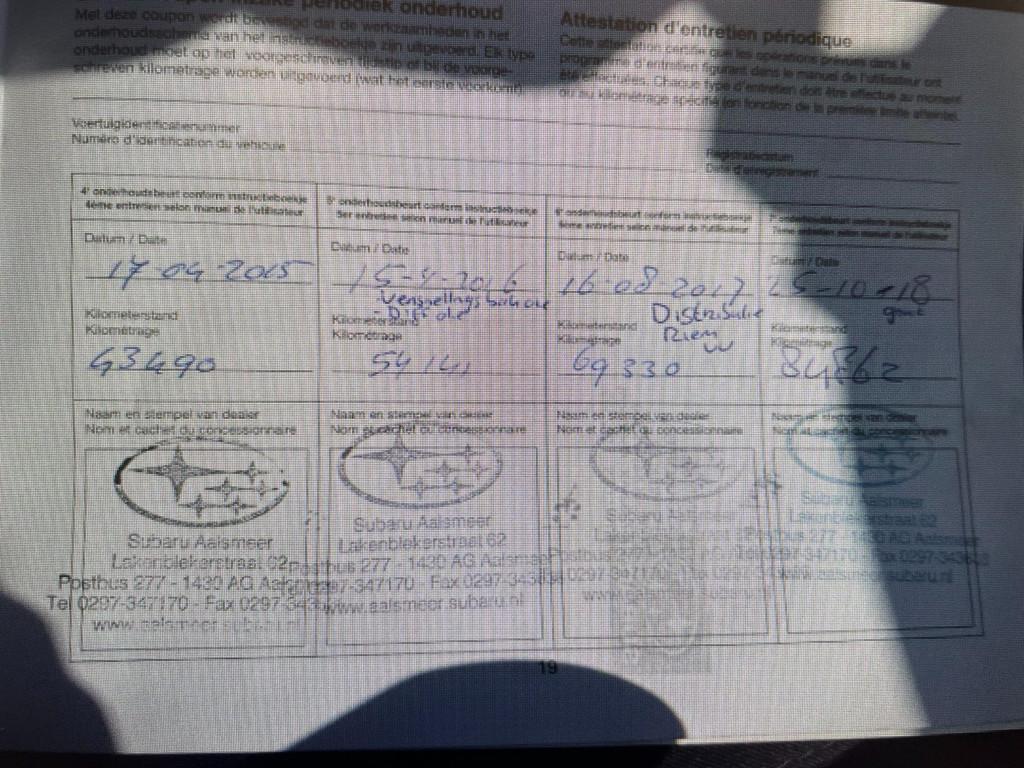 periodiek onderhoud
Met deze coupon wordt bevestigd dat de werkzaamheden in het
onderhoudsschema van het instructieboekje zijn uitgevoerd. Elk type
onderhoud moet op het voorgeschreven tijdstip of bij de voorge-
schreven kilometrage worden uitgevoerd (wat het eerste voorkomt).
Attestation d'entretien périodique
Cette attestation certifie que les opérations prévues dans le
programme d'entretien figurant dans le manuel de l'utilisateur ont
été effectuées. Chaque type d'entretien doit être effectué au moment
ou au kilométrage spécifié (en fonction de la première limite atteinte).
Voertuigidentificatienummer
Numéro d'identification du véhicule
Registratiedatum
Date d'enregistrement
4e onderhoudsbeurt conform instructieboekje
4ème entretien selon manuel de l'utilisateur
Datum / Date
17-04-2015
Kilometerstand
Kilométrage
43490
Naam en stempel van dealer
Nom et cachet du concessionnaire
Subaru Aalsmeer
Lakenblekerstraat 62
Postbus 277 - 1430 AG
Tel 0297-347170 - Fax 0297-343
www.aalsmeer.subaru.nl
5e onderhoudsbeurt conform instructieboekje
5er entretien selon manuel de l'utilisateur
Datum / Date
15-4-2016
- Diff olie
Kilometerstand
Kilométrage
54141
Naam en stempel van dealer
Nom et cachet du concessionnaire
Subaru Aalsmeer
Lakenblekerstraat 62
Postbus 277 - 1430 AG Aalsmeer
0297-347170 - Fax 0297-343
www.aalsmeer.subaru.nl
6e onderhoudsbeurt conform instructieboekje
6ème entretien selon manuel de l'utilisateur
Datum / Date
16-08-2017
Distributie
Riem
Kilometerstand
Kilométrage
69330
Naam en stempel van dealer
Nom et cachet du concessionnaire
Subaru Aalsmeer
7e onderhoudsbeurt conform instructieboekje
7ème entretien selon manuel de l'utilisateur
Datum / Date
25-10-18
Kilometerstand
Kilométrage
84862
Naam en stempel van dealer
Nom et cachet du concessionnaire
Subaru Aalsmeer
Lakenblekerstraat 62
277 - 1430 AG Aalsmeer
347170 - Fax 0297-343
www.aalsmeer.subaru.nl
19